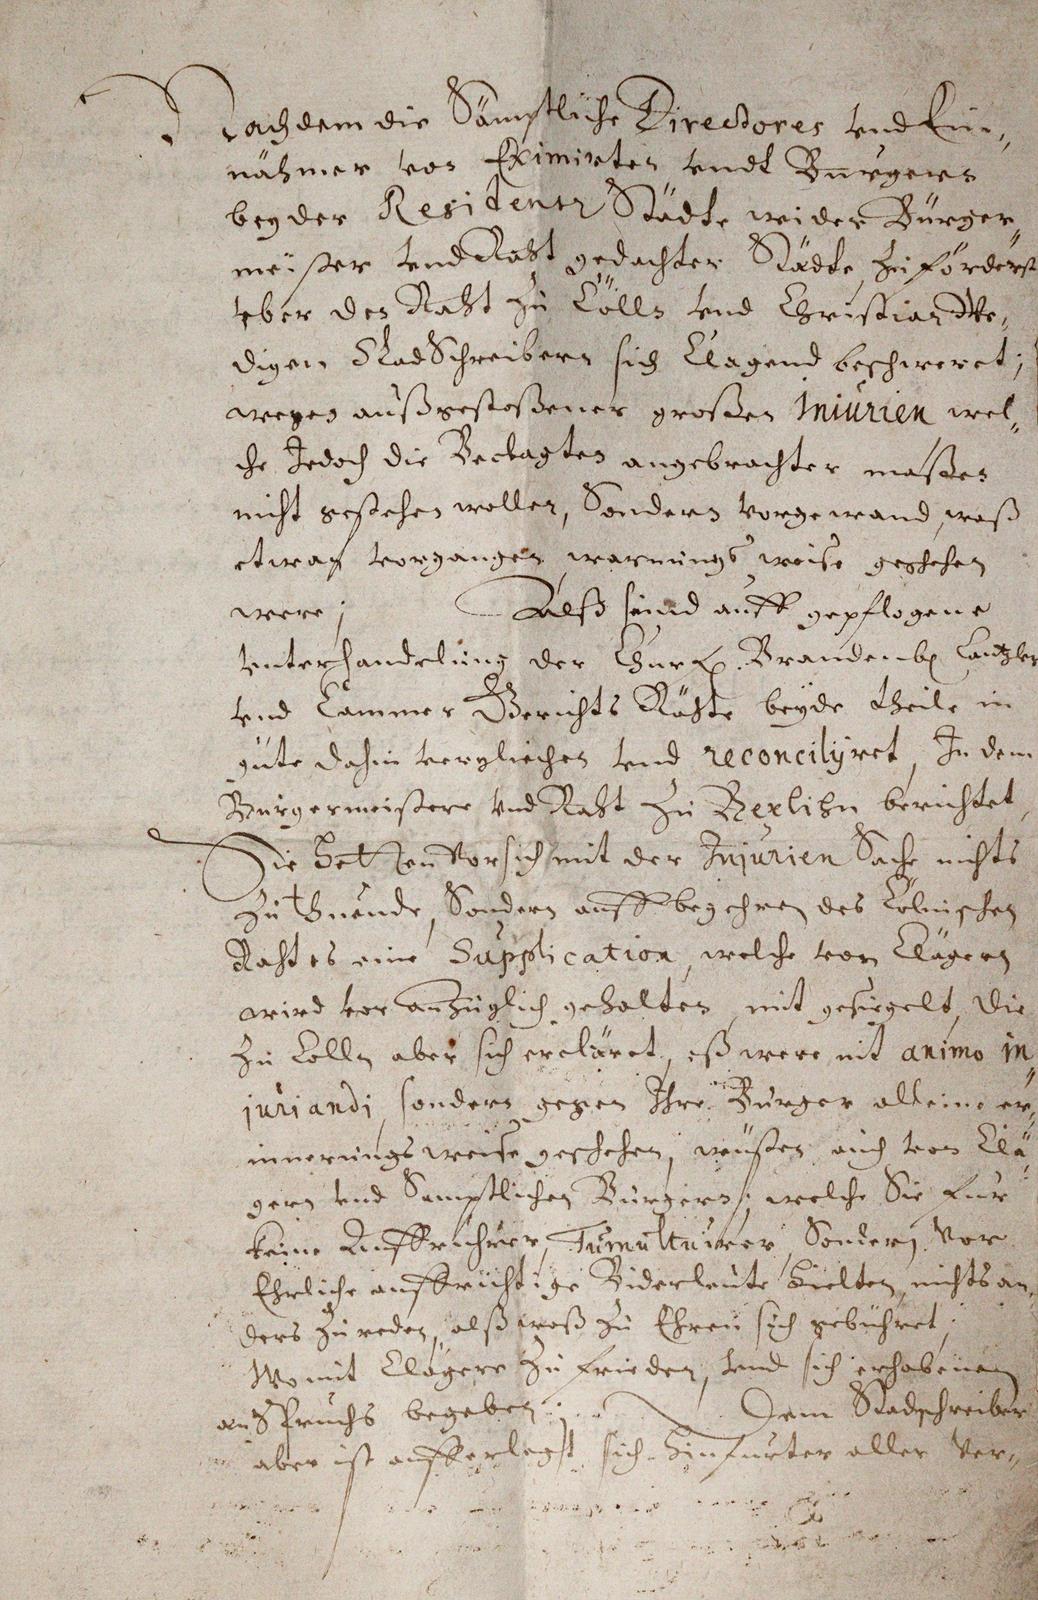 Nachdem die Sämptliche Directores vnd Ein-,
nähmer von Eximirten vndt Burgern
bey der Residentz Städte wider Bürger,,
meister vnd Raht gedachter Städte, zu förderst
vber den Raht zu Cölln vnd Christian We-,
digen StadSchreibern sich Clagend beschweret;
wegen außgestoßener großen Iniurien wel-,
che Jedoch die Beclagten angebrachter maßen
nicht gestehen wollen, Sondern vorgewand, waß
etwas vorgangen warnungs weise geschehen
were; Alß seind auff gepflogene
vnterhandelung der Churf. Brandenb. Cantzler
vnd Cammer Gerichts Rähte beyde theile in
güte dahin verglichen vnd reconcilijret, In dem
Burgermeistere vnd Raht zu Berlihn berichtet,
Sie hetten vor sich mit der Injurien Sache nichts
zu thuende, Sondern auff begehren des Cölnischen
Rahtes eine Supplication, welche von Clägern
wird vor anzüglich gehalten, mit gesiegelt, Die
zu Colln aber sich ercläret, eß were nit animo in,,
juriandi, sondern gegen Ihre Burger alleine er,,
innerungs weise geschehen, wüsten auch von Clä,,
gern vnd Samptlichen Burgern, welche Sie fur
keine Auffruhrer, Tumultuirer, Sondern vor
Ehrliche auffrichtige Biderleute hielten, nichts an,,
ders zu reden, alß waß zu Ehren sich gebühret;
Womit Clägere zu frieden, vnd sich erhabenen
anSpruchs begeben; Dem Stadschreiber
aber ist aufferlegt sich hinfurter aller Ver-,,